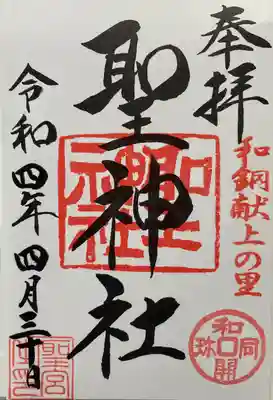 奉拝
和銅献上の里
和同開珎
聖神社
聖神社
令和四年四月三十日